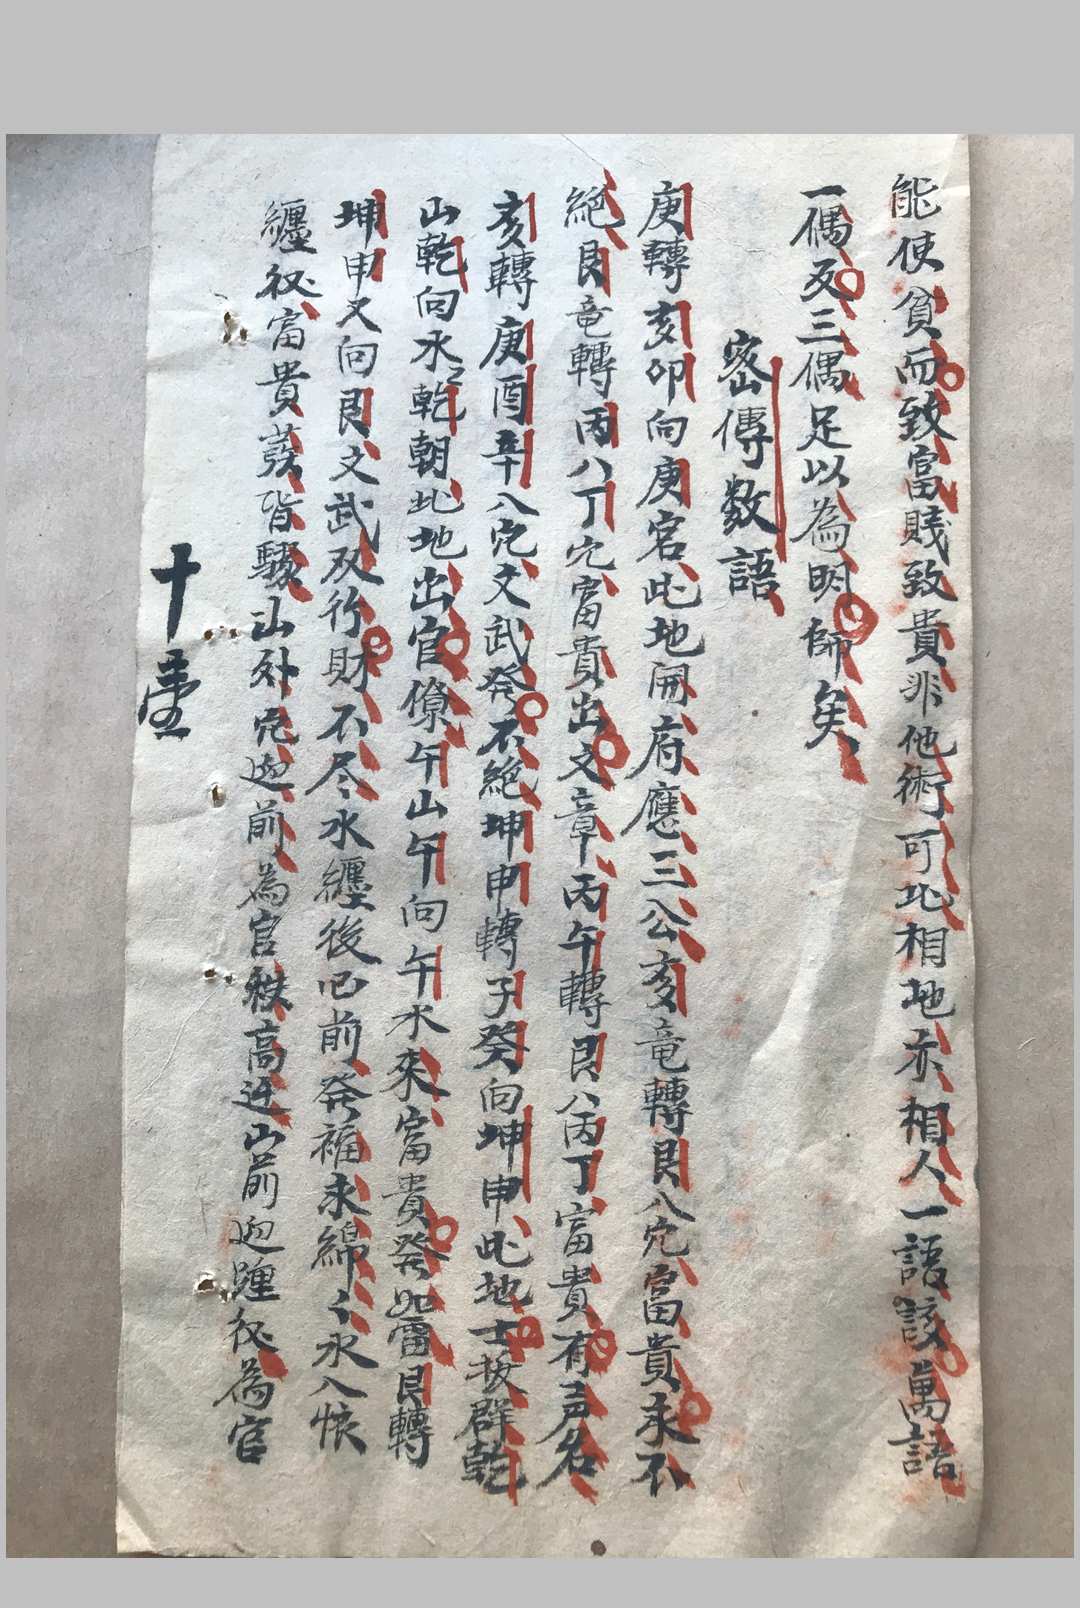 能使貧而致富賤致貴非他術可比相地亦相人一語該萬語
一偶反三偶足以為明師矣
密傳数語
庚轉亥卯向庚宮此地開府應三公亥竜轉艮八穴富貴永不
絕艮竜轉丙八丁穴富貴出文章丙午轉艮八丙丁富貴有声名
亥轉庚酉辛八穴文武發不絕坤申轉子癸向坤申此地士拔群乾
山乾向水乾朝此地出官僚午山午向午水來富貴發如雷艮轉
坤申又向艮文武双行財不尽水纏後已前発福永綿々水入懷
纏後富貴發皆驟山外穴迎前為官秩高迁山前迎踵後為官
十壹